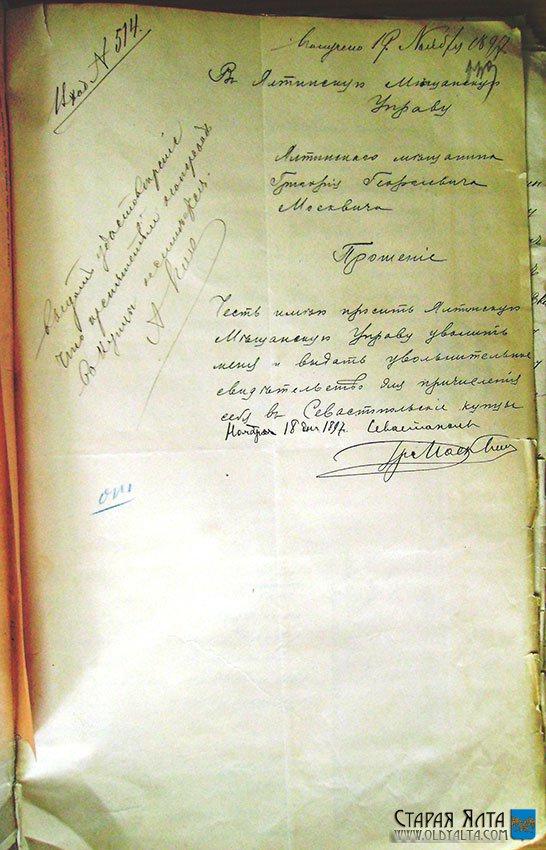 Вход № 514.
Получено 19 Ноября 1897.
Въ Ялтинскую Мѣщанскую
Управу
Ялтинскаго мѣщанина
Григорія Георгіевича
Москвича
Прошеніе
Честь имѣю просить Ялтинскую
Мѣщанскую Управу уволить
меня и выдать увольнительное
свидѣтельство для причисленія
себя въ Севастопольскіе купцы
Ноября 18 дня 1897. Севастополь
Гр Москвич
Выдать удостовѣреніе
что препятствій
въ купцы
СТАРАЯ ЯЛТА
WWW.OLDYALTA.COM